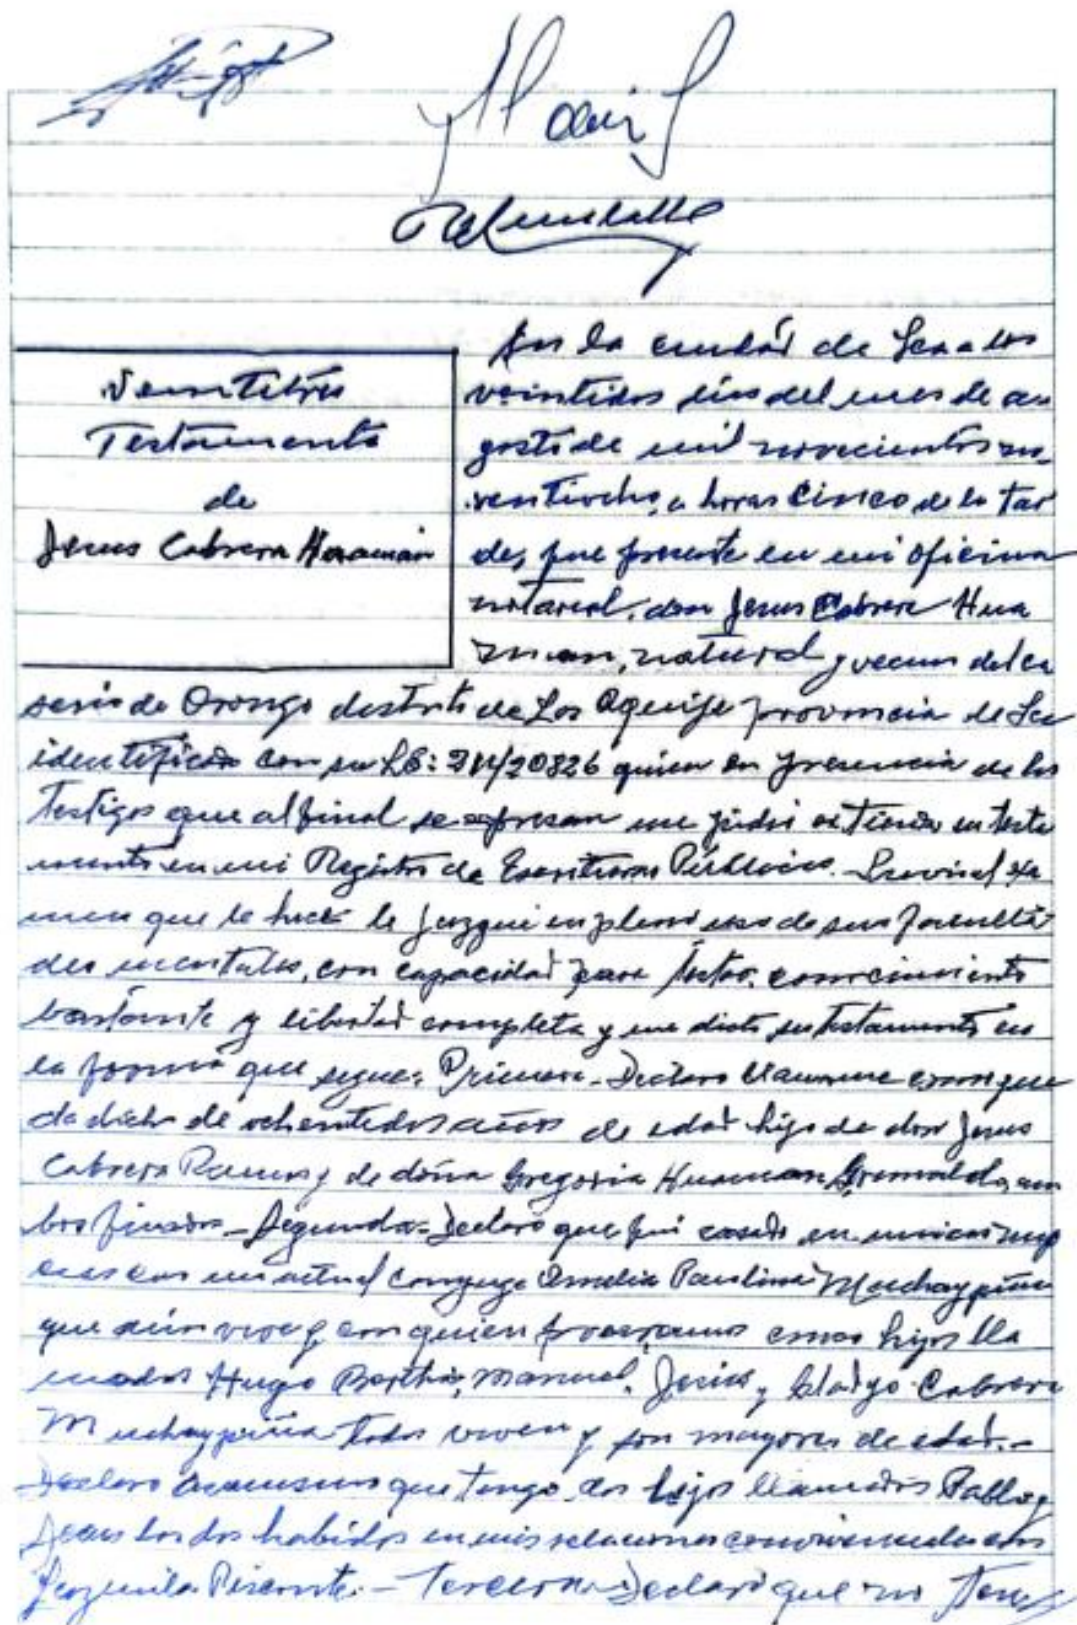 Veintitrés
Testamento
de
Jesus Cabrera Huaman
En la ciudad de Ica a los
veintidos dias del mes de au
gosto de mil novecientos no
ventiocho, a horas cinco de la tar
de, fue presente en mi oficina
notarial, don Jesus Cabrera Hua
man, natural y vecino del ca
serio de Orongo distrito de Los Aquije provincia de Ica
identificado con su LE: quien en presencia de los
testigos que al final se expresan me pidió extienda su testa
mento en mi Registro de Escrituras Públicas. - exa
men que le hice le juzgué en pleno uso de sus faculta
des mentales, con capacidad para testar, conocimiento
bastante y libertad completa y me dictó su testamento en
la forma que sigue: Primera. - Declaro llamarme como que
da dicho de ochentedos años de edad hijo de don Jesus
Cabrera Ramos y de doña Gregoria Huaman Grimaldo, am
bos finados - Segunda - Declaro que fui casado en unicas nup
cias con mi actual conyuge Amelia Paulina Muchaypiña
que aún vive y con quien procreamos cinco hijos lla
mados Hugo Bertha, Manuel, Jesús, y Gladys Cabrera
Muchaypiña todos viven y son mayores de edad. -
Declaro que tengo dos hijos llamados Pablo y
Jesus los dos habidos en mis relaciones con
Pisconte. - Tercera - Declaro que no